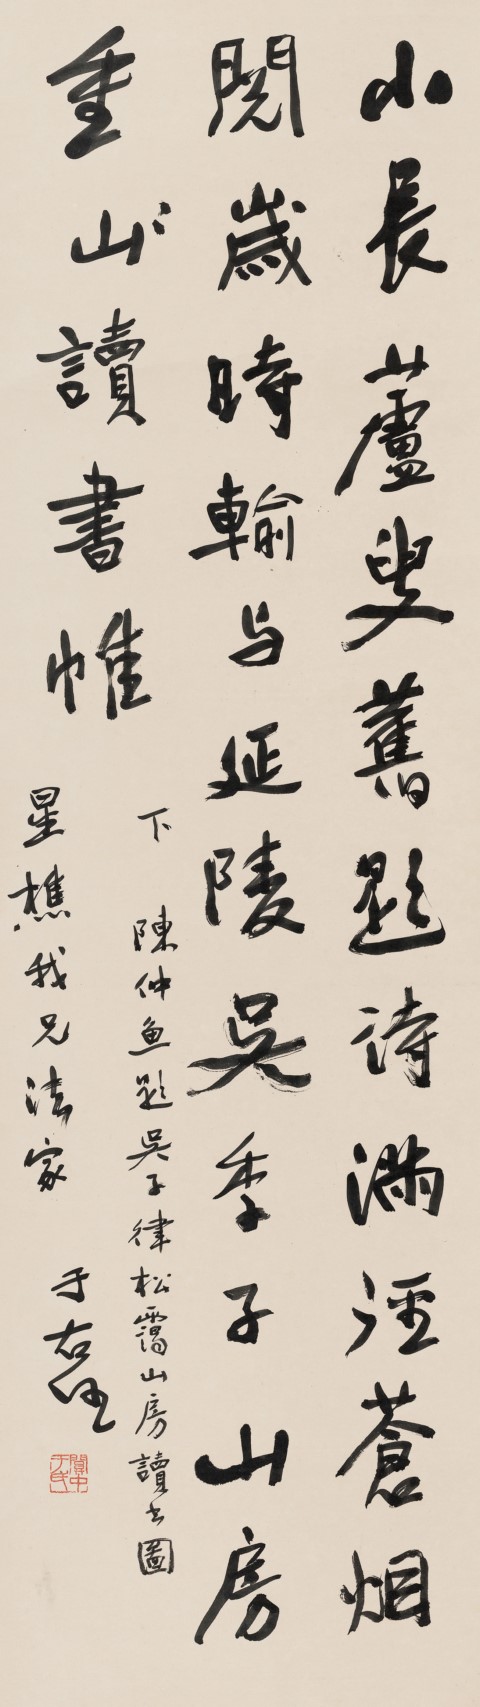 小長蘆叟舊題詩滿徑蒼烟
閱歲時輸与延陵吳季子山房
重山讀書帷
下 陳仲魚題吳子律松靄山房讀書圖
星樵我兄法家
于右任
關中于氏